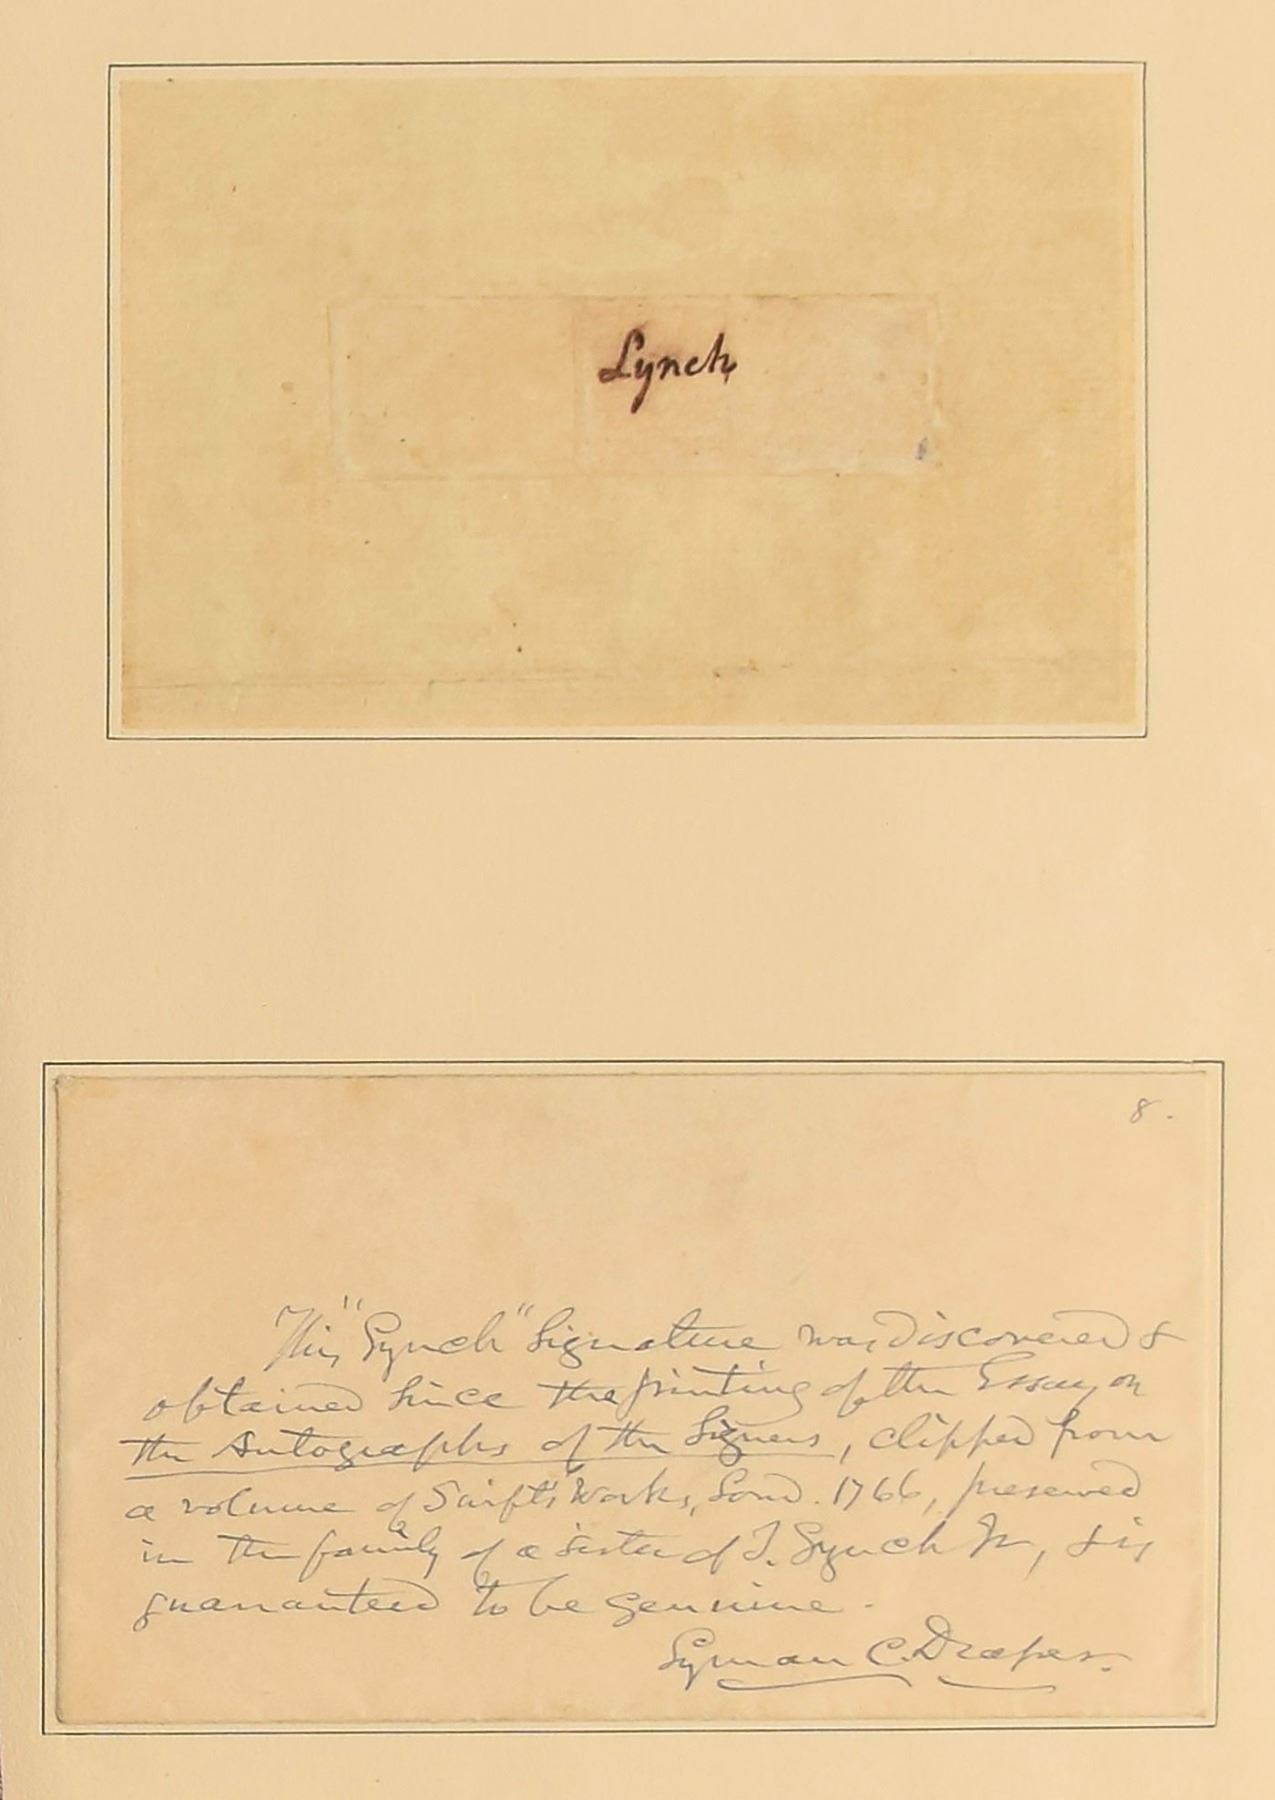 Lynch
8.
This "Lynch" Signature was discovered &
obtained since the printing of the Essay on
the Autographs of the Signers, clipped from
a volume of Swift's Works, Lond. 1766, preserved
in the family of a sister of T. Lynch Jr, & is
guaranteed to be genuine.
Lyman C. Draper.